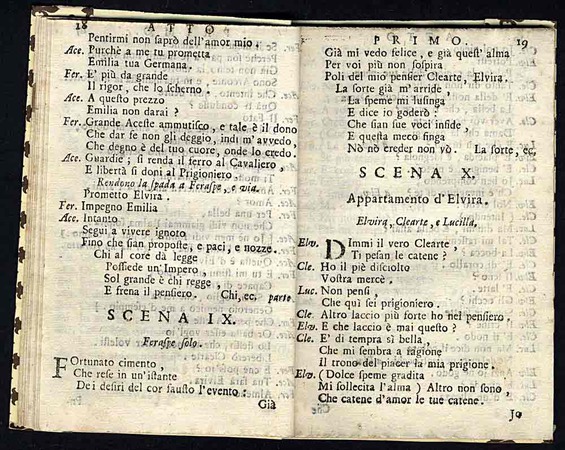 18 ATTO
Pentirmi non saprò dell'amor mio.
Ace. Purchè a me tu prometta
Emilia tua Germana.
Fer. E' più da grande
Il rigor, che lo scherno.
Ace. A questo prezzo
Emilia non darai?
Fer. Grande Aceste ammutisco, e tale è il dono
Che dar se non gli deggio, indi m'avvedo,
Che degno è del tuo cuore, onde lo credo.
Ace. Guardie; si renda il ferro al Cavaliero,
E libertà si doni al Prigioniero.
Rendono la spada a Feraspe, e via.
Prometto Elvira.
Fer. Impegno Emilia
Ace. Intanto
Segui a vivere ignoto
Fino che sian proposte, e paci, e nozze.
Chi al core dà legge
Possiede un'Impero,
Sol grande è chi regge,
E frena il pensiero. Chi, ec. parte
SCENA IX.
Feraspe solo.
Fortunato cimento,
Che rese in un'istante
Dei desiri del cor fausto l'evento:
Già
PRIMO. 19
Già mi vedo felice, e già quest'alma
Per voi più non sospira
Poli del mio pensier Clearte, Elvira.
La sorte già m'arride
La speme mi lusinga
E dice io goderò:
Che sian sue voci infide,
E questa meco finga
Nò nò creder non vò. La sorte, ec.
SCENA X.
Appartamento d'Elvira.
Elvira, Clearte, e Lucilla.
Elv. Dimmi il vero Clearte,
Ti pesan le catene?
Cle. Ho il piè disciolto
Vostra mercè.
Luc. Non pensi,
Che quì sei prigioniero.
Cle. Altro laccio più forte ho nel pensiero.
Elv. E che laccio è mai questo?
Cle. E' di tempra sì bella,
Che mi sembra a ragione
Il trono del piacer la mia prigione.
Elv. (Dolce speme gradita
Mi sollecita l'alma) Altro non sono,
Che catene d'amor le tue catene.
Jo